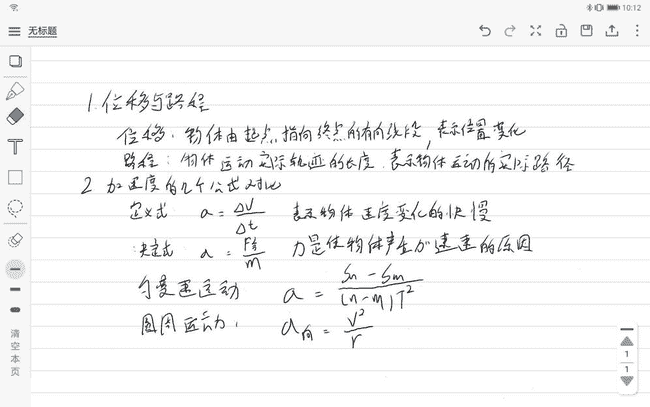 10:12
无标题
1.位移与路程
位移：物体由起点指向终点的有向线段，表示位置变化
路程：物体运动实际轨迹的长度 表示物体运动的实际路径
2 加速度的几个公式对比
定义式 a = ΔV/Δt 表示物体速度变化的快慢
决定式 a = F合/m 力是使物体产生加速度的原因
匀变速运动 a = (Sn - Sm)/((n-m)T²)
圆周运动. a向 = V²/r
清空本页
1
1